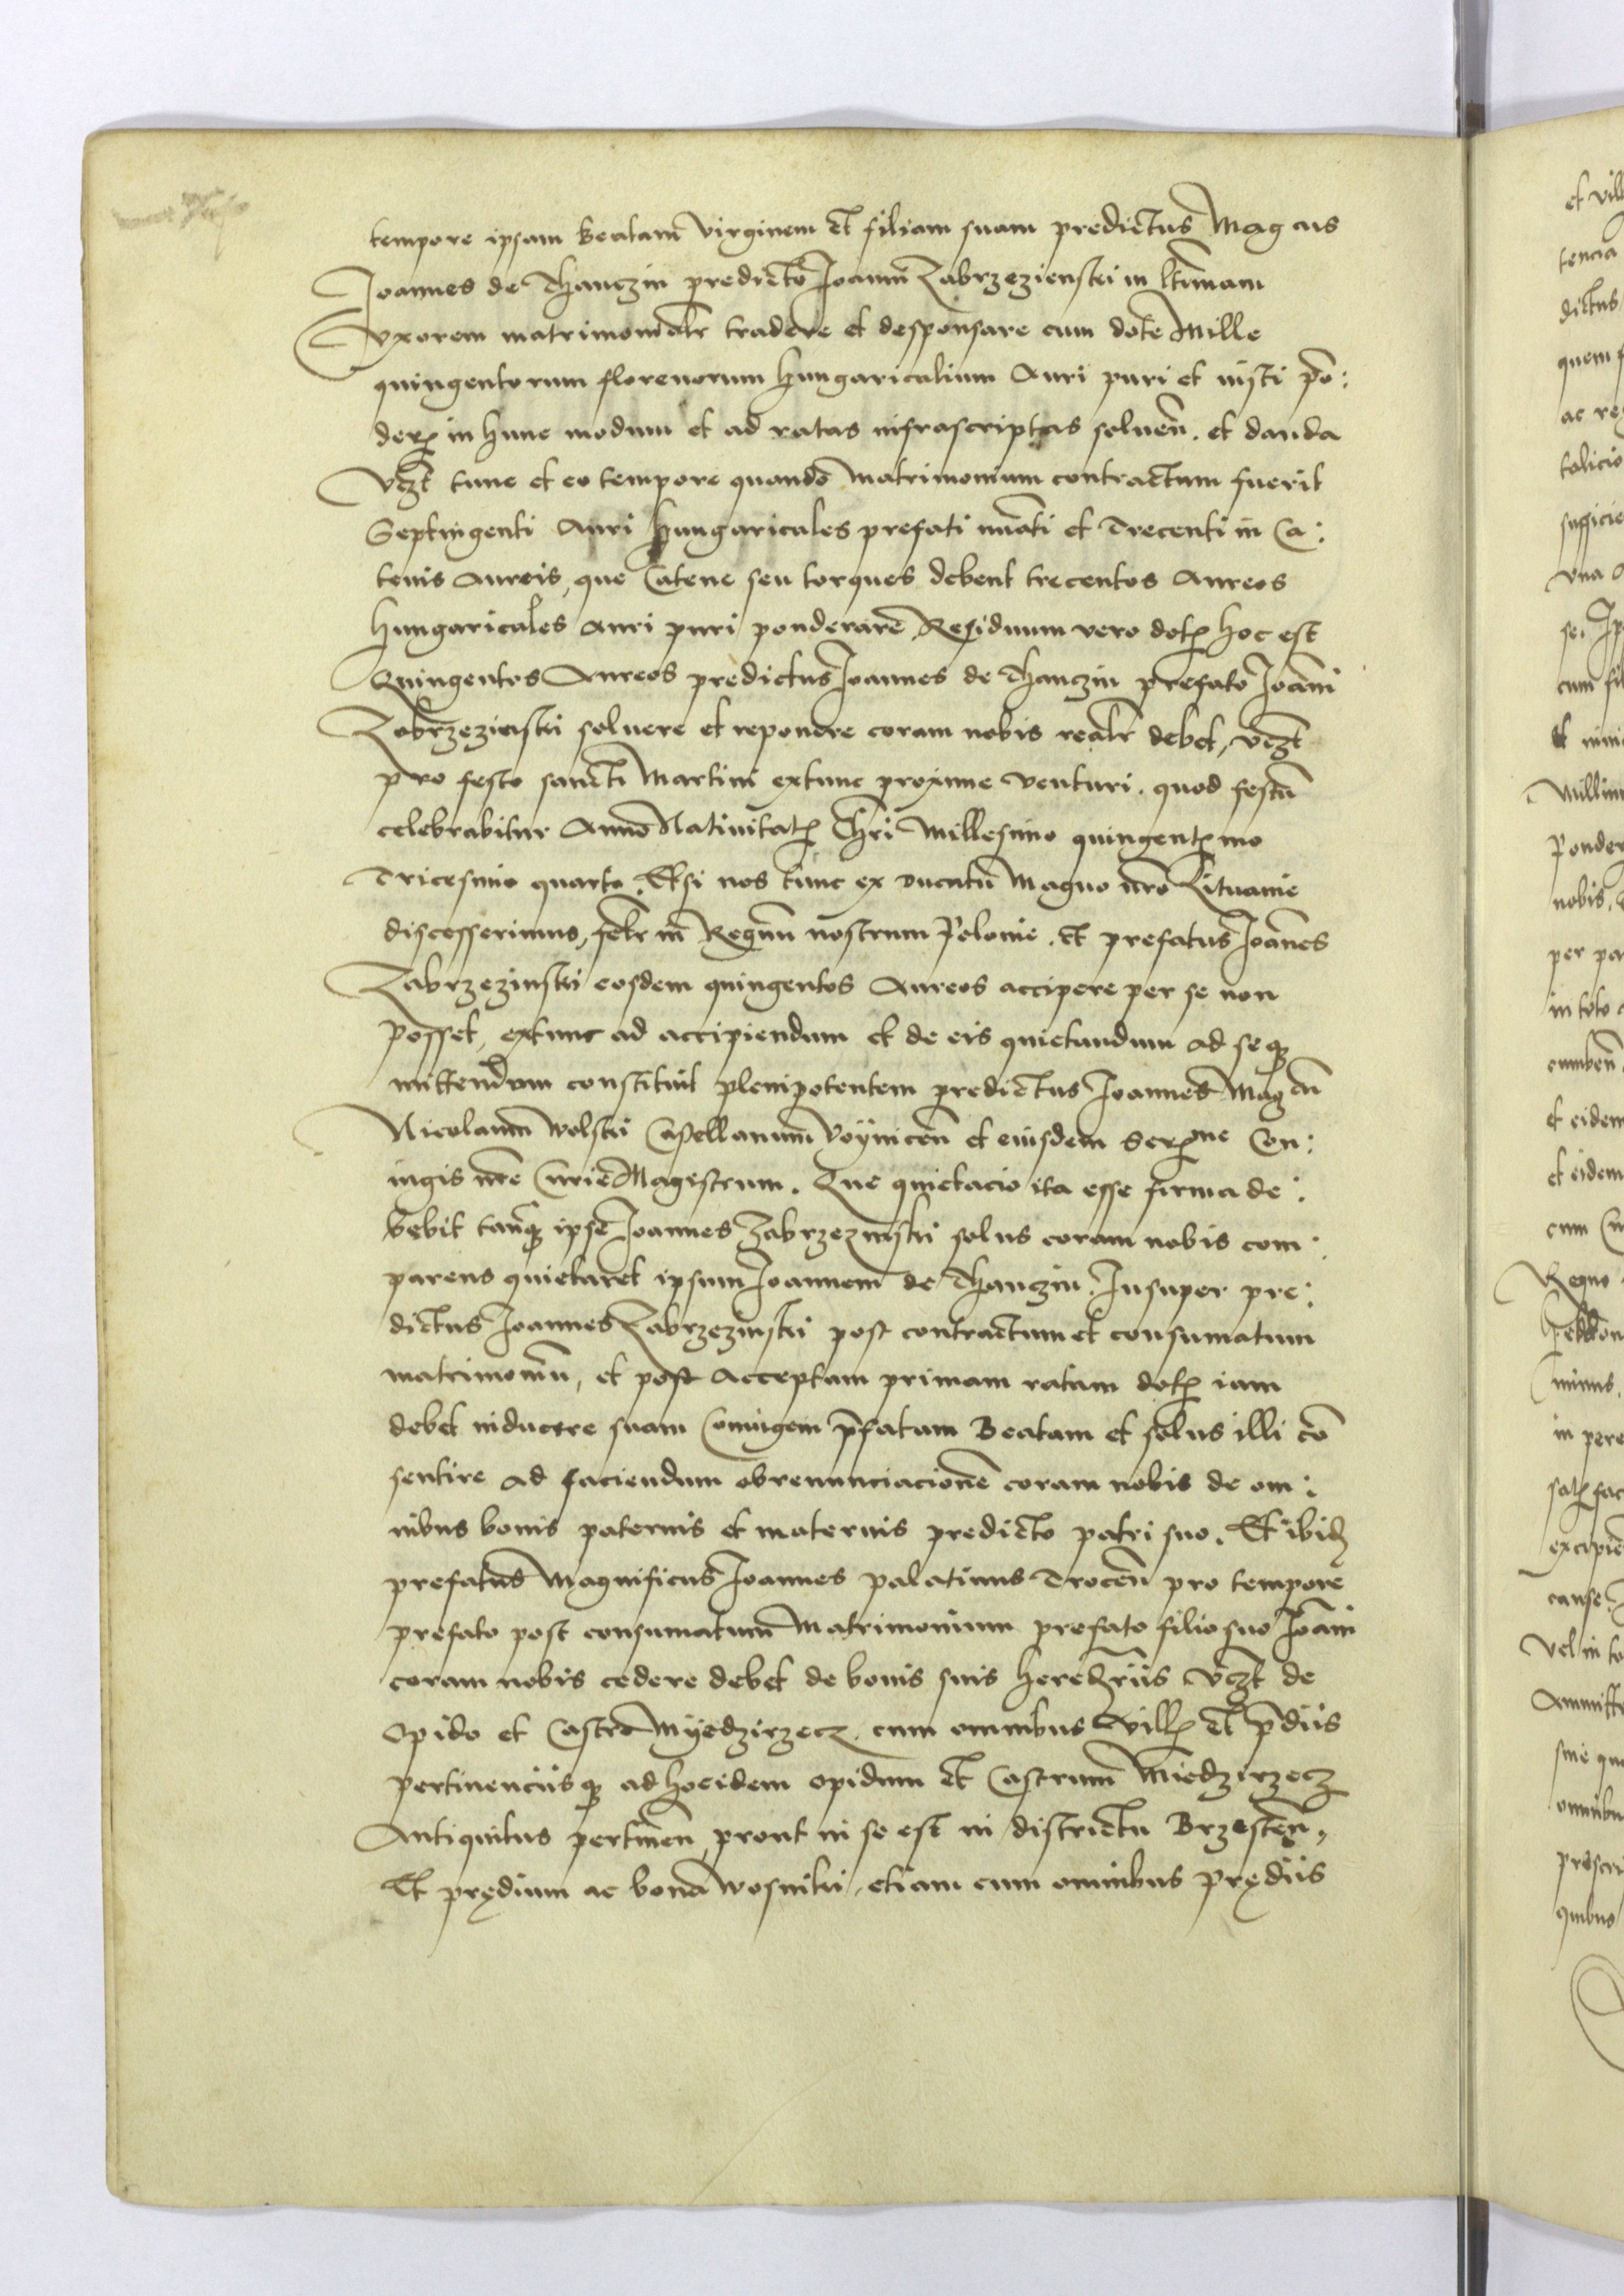 tempore ipsam Beatam virginem et filiam suam predictus Mag cus
Joannes de Thanczin predicto Joanni Zabrzezienski in ltimam
Uxorem matrimonialr tradere et despponsare cum dote Mille
quingentorum florenorum Hungaricalium Auri puri et iusti pō:
deris in hunc modum et ad ratas infrascriptas soluen. et danda
Vczt tunc et eo tempore quando Matrimonium contractum fuerit
Septingenti Auri Hungaricales prefati nūati et Trecenti in Ca:
tenis Aureis, que Catene seu torques debent trecentos Aureos
Hungaricales Auri puri ponderare, Residuum vero dotis hoc est
Quingentos Aureos predictus Joannes de Thanczin prefato Joāni
Zabrzezienski soluere et repondre coram nobis realr debet, vczt
pro festo sancti Martini extunc proxime venturi. quod festū
celebrabitur Anno Natiuitatis Chri Millesimo quingentismo
Tricesimo quarto. Etsi nos tunc ex ducatu Magno nro Lituanie
discesserimus, felr in Regnū nostrum Polonie. et prefatus Joānes
Zabrzezinski eosdem quingentos Aureos accipere per se non
posset, extunc ad accipiendum et de eis quietandum ad seq
mittendum constituit plenipotentem predictus Joannes Mag cū
Nicolaum Wolski Castellanum Voynicen et eiusdem Serme Con:
iugis nre Curie Magistrum. Que quietacio ita esse firma de:
bebit tanq ipse Joannes Zabrzezinski solus coram nobis com:
parens quietaret ipsum Joannem de Thanczin. Insuper pre:
dictus Joannes Zabrzezinski post contractum et consumatum
matrimoniū, et post Acceptam primam ratam dotis iam
debet inducere suam Coniugem pfatam Beatam et solus illi cō
sentire ad faciendum obrenunciacionē coram nobis de om:
nibus bonis paternis et maternis predicto patri suo. Et ibid
prefatus Magnificus Joannes palatinus Trocen pro tempore
prefato post consumatum Matrimonium prefato filio suo Joāni
coram nobis cedere debet de bonis suis heredriis vczt de
Opido et Castro Myedzirzecz cum omnibus Villis et pdiis
pertinenciisq ad hocidem opidum et Castrum Miedzirzecz
Antiquitus pertinen, prout in se est in districtu Brzesten,
Et prędium ac bona Wosniki, etiam cum omnibus prędiis